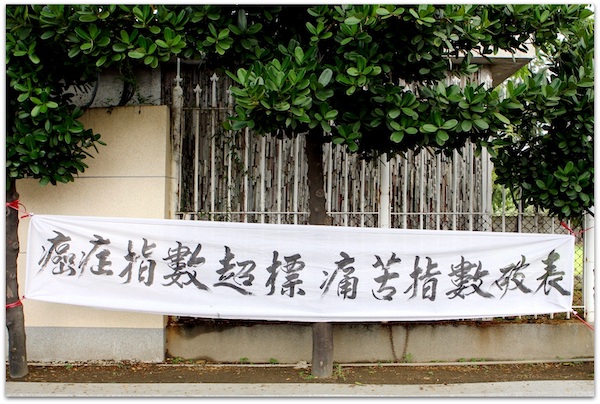 癌症指數超標 痛苦指數破表